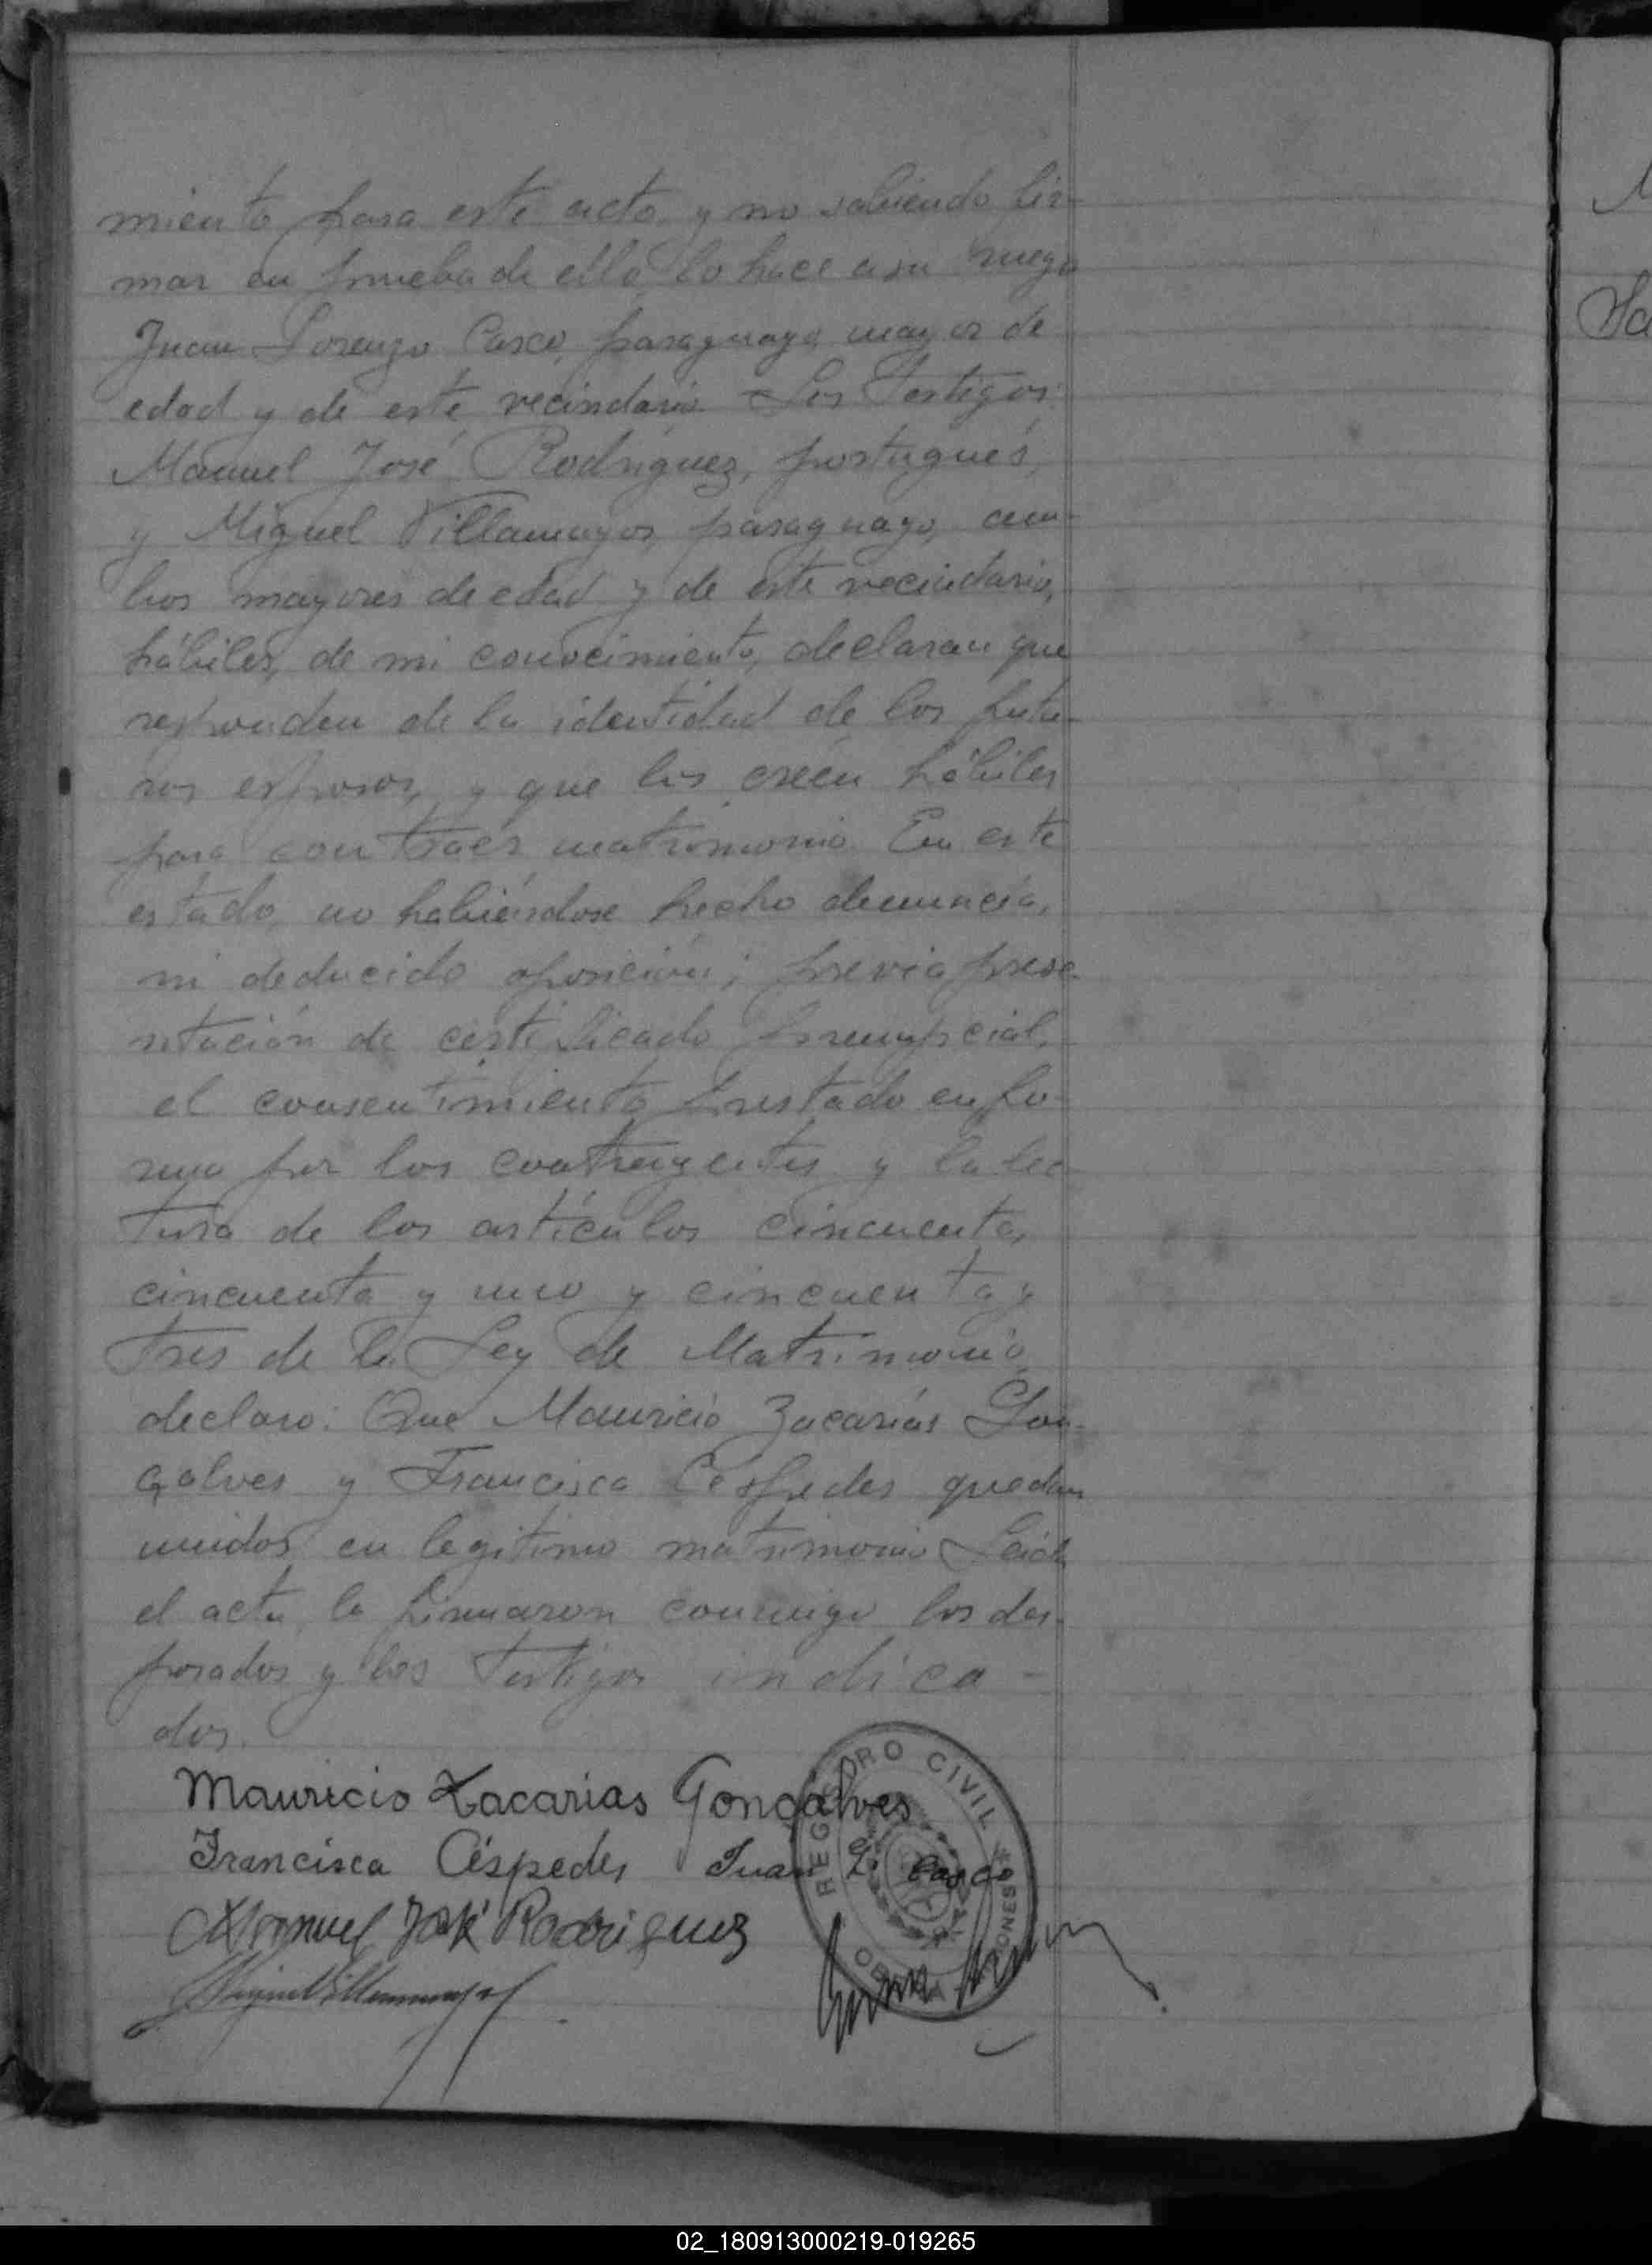 miento para este acto y no sabiendo fir-
mar en prueba de ello lo hace a su ruego
Juan Lorenzo Casco, paraguayo mayor de
edad y de este vecindario. Los Testigos:
Manuel José Rodriguez, portugués,
y Miguel Villamayor, paraguayo, am-
bos mayores de edad y de este vecindario,
hábiles, de mi conocimiento, declaran que
responden de la identidad de los futu-
ros esposos, y que los creén hábiles
para contraer matrimonio. En este
estado, no habiéndose hecho denuncia,
ni deducido oposición; previa prese-
ntación de certificado prenupcial,
el consentimiento prestado en for-
ma por los contrayentes y la lec-
tura de los artículos cincuenta,
cincuenta y uno y cincuenta y
tres de la Ley de Matrimonio
declaro: Que Mauricio Zacarías Gon-
çalves y Francisca Céspedes quedan
unidos en legitimo matrimonio. Leida
el acta, la firmaron conmigo los des-
posados y los Testigos indica-
dos.
Mauricio Zacarias Gonçalves
Francisca Céspedes Juan L. Casco
Manuel José Rodriguez
Miguel Villamayor
REGISTRO CIVIL